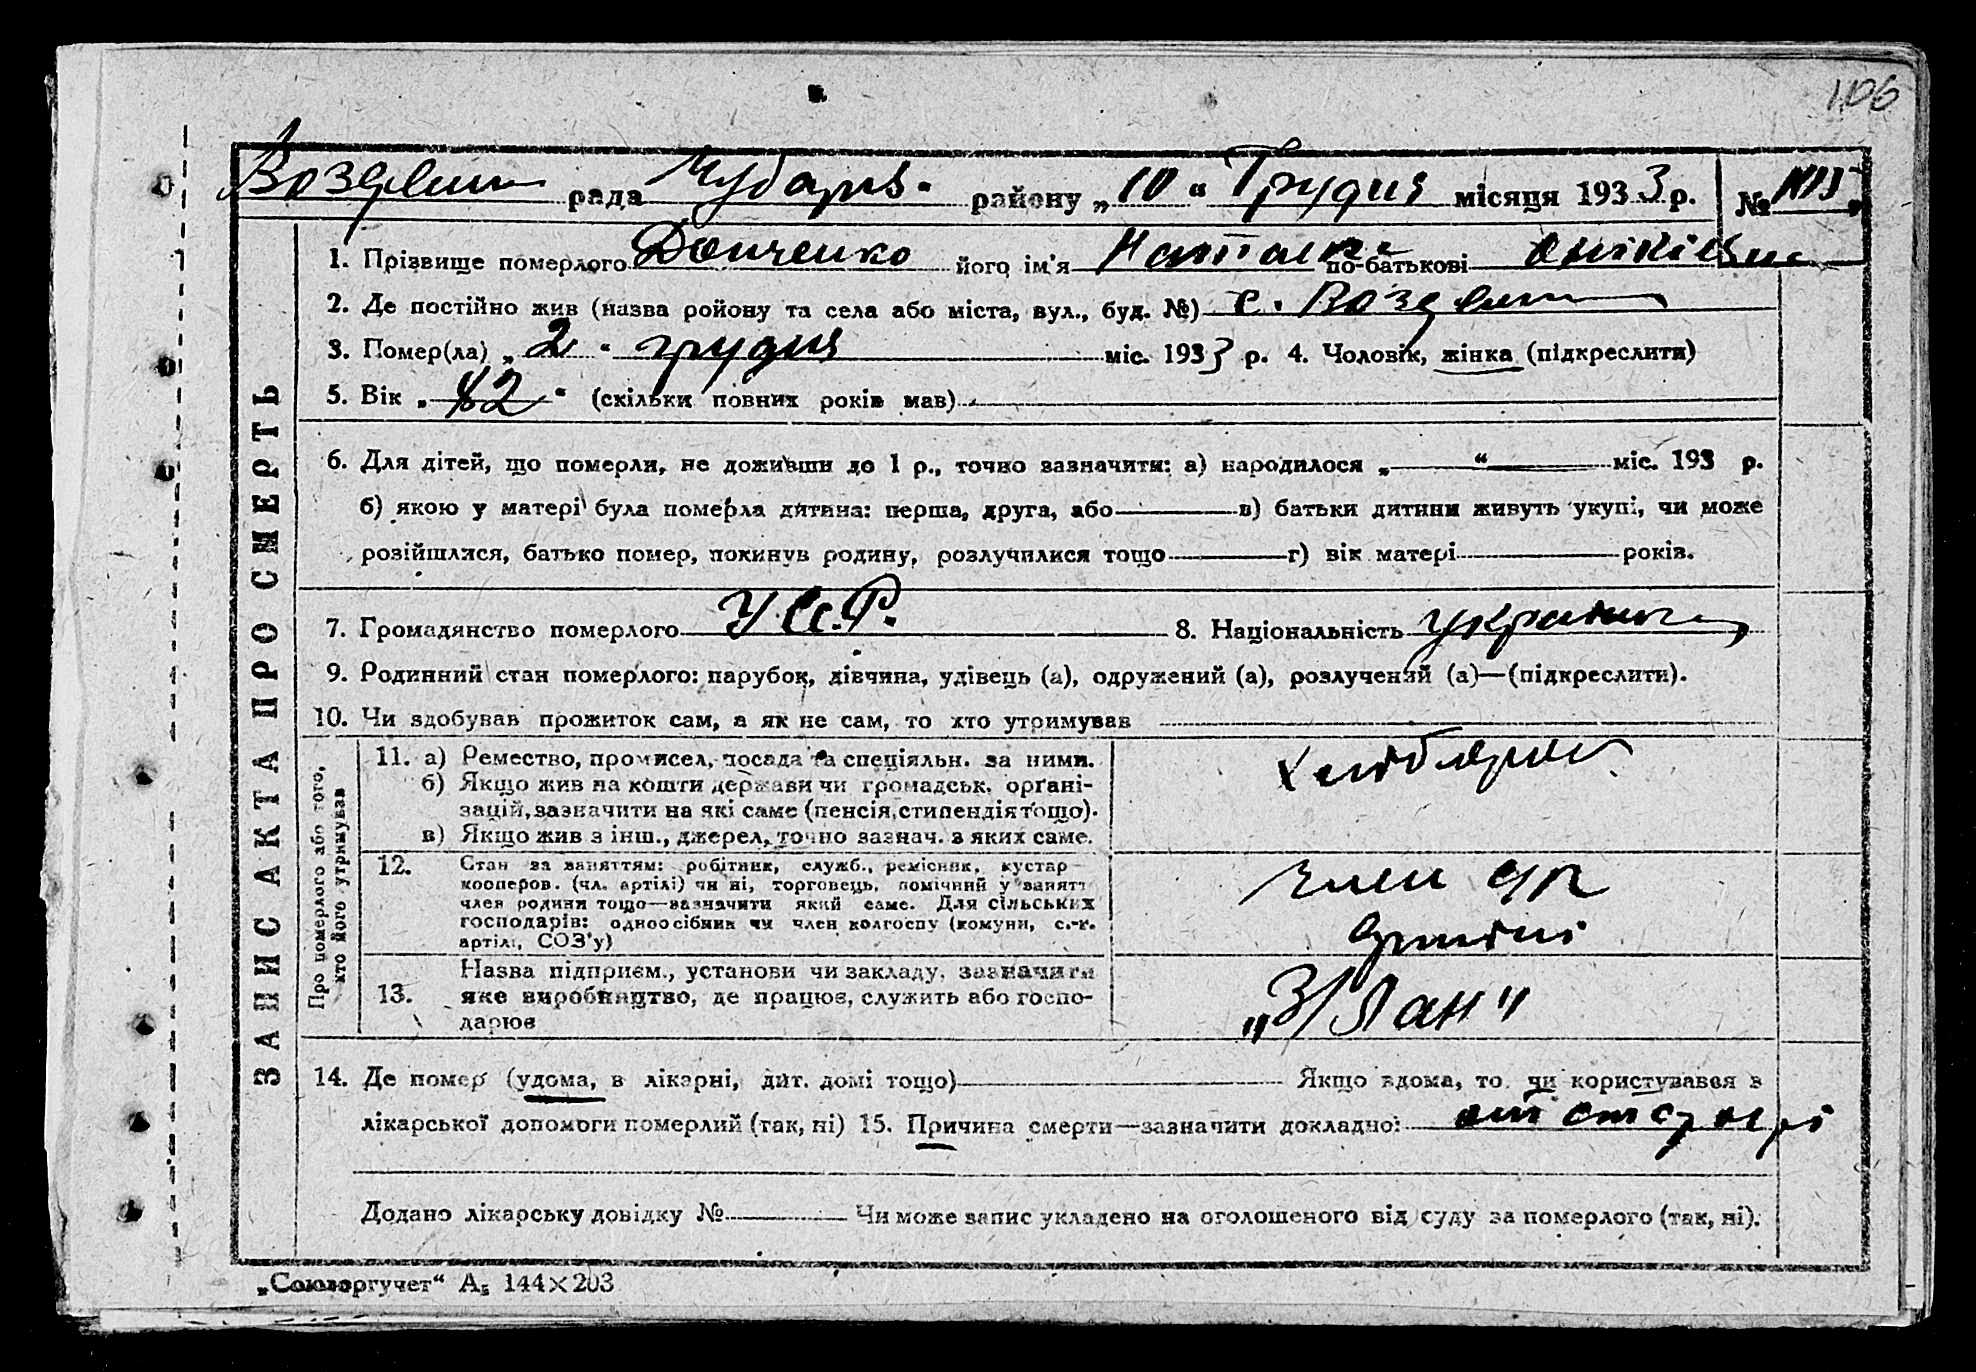 106
Воздвиж рада Чубарів. району „10“ Грудня місяця 1933 р. №
1. Прізвище померлого Донченко його ім'я Наталка по-батькові Оникієвна
2. Де постійно жив (назва ройону та села або міста, вул., буд. №) с. Воздвиж
3. Помер(ла) „2“ грудня міс. 1933 р. 4. Чоловік, жінка (підкреслити)
5. Вік „82“ (скільки повних років мав)
6. Для дітей, що померли, не доживши до 1 р., точно зазначити: а) народилося „ “ міс. 193 р.
б) якою у матері була померла дитина: перша, друга, або в) батьки дитини живуть укупі, чи може
розійшлися, батько помер, покинув родину, розлучилися тощо г) вік матері років.
7. Громадянство померлого У.С.С.Р. 8. Національність українка
9. Родинний стан померлого: парубок, дівчина, удівець (а), одружений (а), розлучений (а)—(підкреслити).
10. Чи здобував прожиток сам, а як не сам, то хто утримував
ЗАПИС АКТА ПРО СМЕРТЬ
Про померлого або того,
хто його утримував
11. а) Ремество, промисел, посада та спеціяльн. за ними.
б) Якщо жив на кошти держави чи громадськ. органі-
зацій, зазначити на які саме (пенсія, стипендія тощо).
в) Якщо жив з інш., джерел, точно зазнач. з яких саме.
хлібороб
12. Стан за заняттям: робітник, служб., ремісник, кустар
кооперов. (чл. артілі) чи ні, торговець, помічний у занятт
член родини тощо—зазначити який саме. Для сільських
господарів: одноосібник чи член колгоспу (комуни, с.-г.
артілі, СОЗ'у)
член с/г
артілі
13. Назва підприєм., установи чи закладу, зазначити
яке виробництво, де працює, служить або госпо-
дарює
„З/Лан“
14. Де помер (удома, в лікарні, дит. домі тощо) Якщо вдома, то чи користувався з
лікарської допомоги померлий (так, ні) 15. Причина смерти—зазначити докладно: от старості
Додано лікарську довідку № Чи може запис укладено на оголошеного від суду за померлого (так, ні).
„Союзоргучет“ А5 144×203